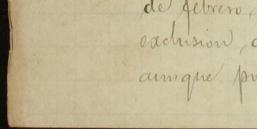 de febrero,
exclusion,
aunque